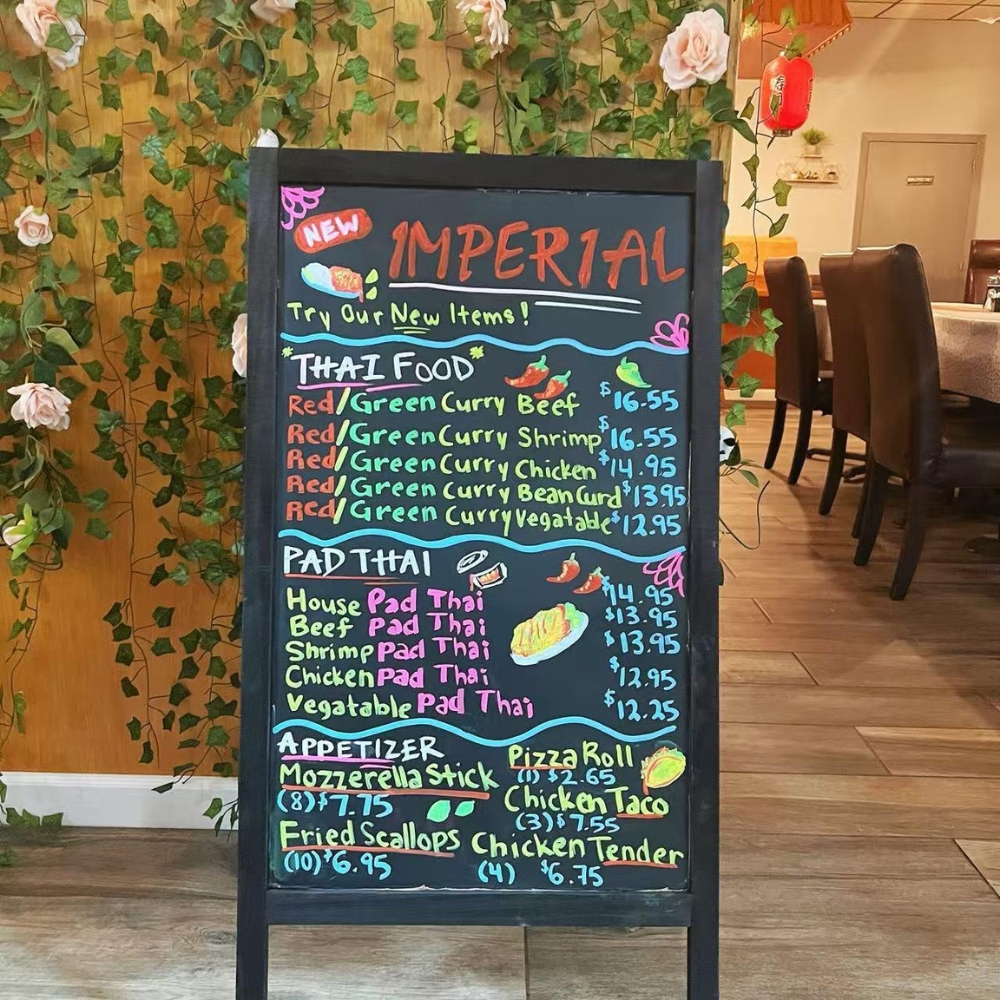 NEW
IMPERIAL
Try Our New Items!
"THAI FOOD"
Red/Green Curry Beef $16.55
Red/Green Curry Shrimp $16.55
Red/Green Curry Chicken $14.95
Red/Green Curry Bean Curd $13.95
Red/Green Curry Vegatable $12.95
PAD THAI
House Pad Thai $14.95
Beef Pad Thai $13.95
Shrimp Pad Thai $13.95
Chicken Pad Thai $12.95
Vegatable Pad Thai $12.25
APPETIZER
Mozzerella Stick
(8) $7.75
Fried Scallops
(10) $6.95
Pizza Roll
(1) $2.65
Chicken Taco
(3) $7.55
Chicken Tender
(4) $6.75